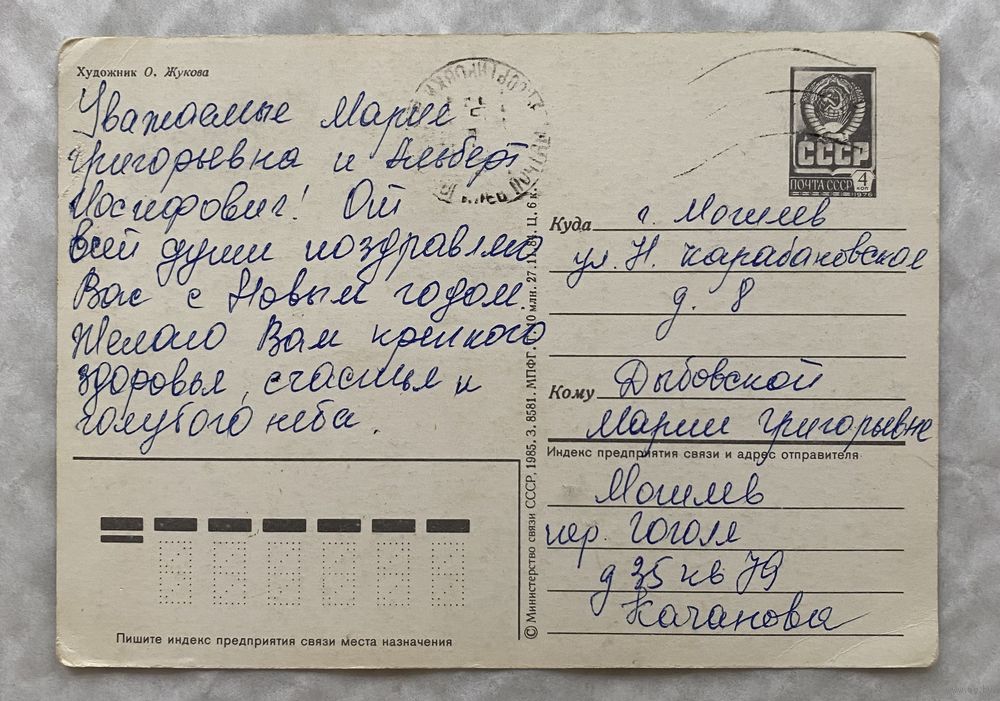 Художник О. Жукова
Уважаемые Мария
Григорьевна и Альберт
Иосифович! От
всей души поздравляю
Вас с Новым годом.
Желаю Вам крепкого
здоровья, счастья и
голубого неба.
Пишите индекс предприятия связи места назначения
© Министерство связи СССР, 1985. З. 8581. МПФГ. 10 млн. 27.11.84. Ц. 6 к.
СССР
ПОЧТА СССР
4 коп
1976
Куда г. Могилев
ул. Н. Карабановская
д. 8
Кому Дыбовской
Марии Григорьевне
Индекс предприятия связи и адрес отправителя
Могилев
пер. Гоголя
д 35 кв 79
Качанова